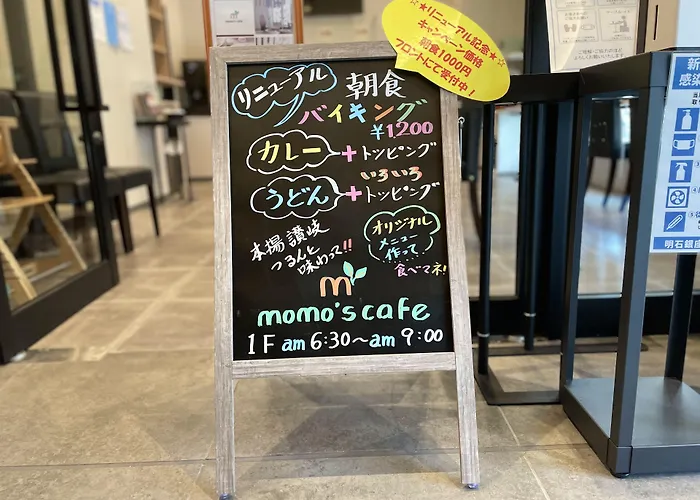 ★リニューアル記念★
キャンペーン価格
朝食1000円
フロントにて受付中！
リニューアル 朝食
バイキング
¥1,200
カレー+トッピング
いろいろ
うどん+トッピング
本場讃岐
つるんと
味わって!!
オリジナル
メニュー
作って
食べてネ!
m
momo's cafe
1F am 6:30～am 9:00
新
感染
明石銀座